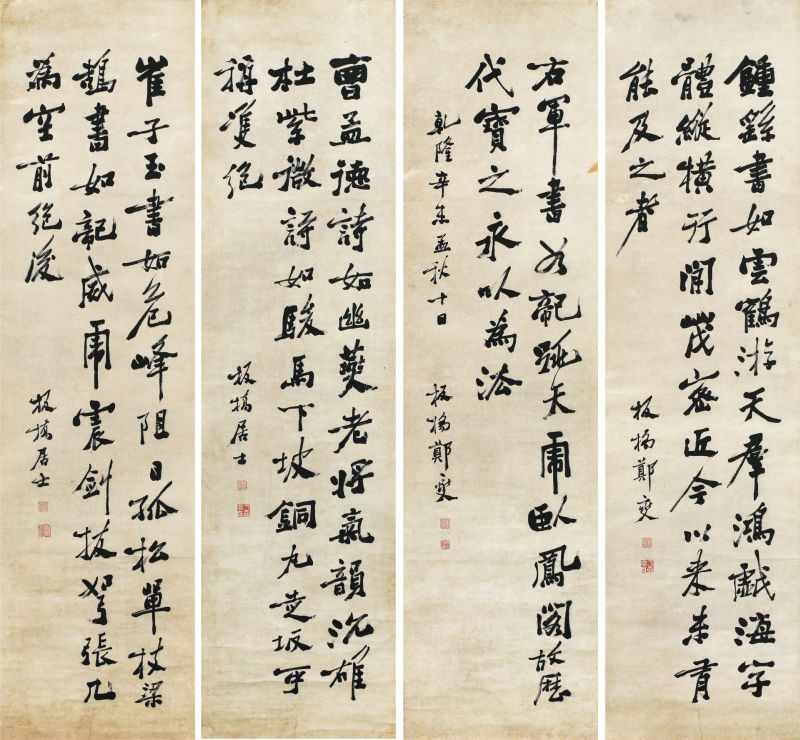 鍾繇書如雲鶴游天羣鴻戲海字
體縱橫行間茂密近今以來未有
能及之者
板橋鄭燮
右軍書如龍跳天門虎臥鳳閣故歷
代寶之永以為法
乾隆辛未孟秋十日
板橋鄭燮
曹孟德詩如幽燕老將氣韻沉雄
杜紫微詩如駿馬下坡銅丸走坂可
稱雙絕
板橋居士
崔子玉書如危峰阻日孤松單枝梁
鵠書如龍威虎震劍拔弩張凡
為空前絕後
板橋居士